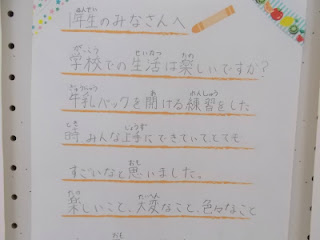 1年生のみなさんへ
学校での生活は楽しいですか?
牛乳パックを開ける練習をした
時みんな上手にできていて、とても
すごいなと思いました。
楽しいこと、大変なこと、色々なこと